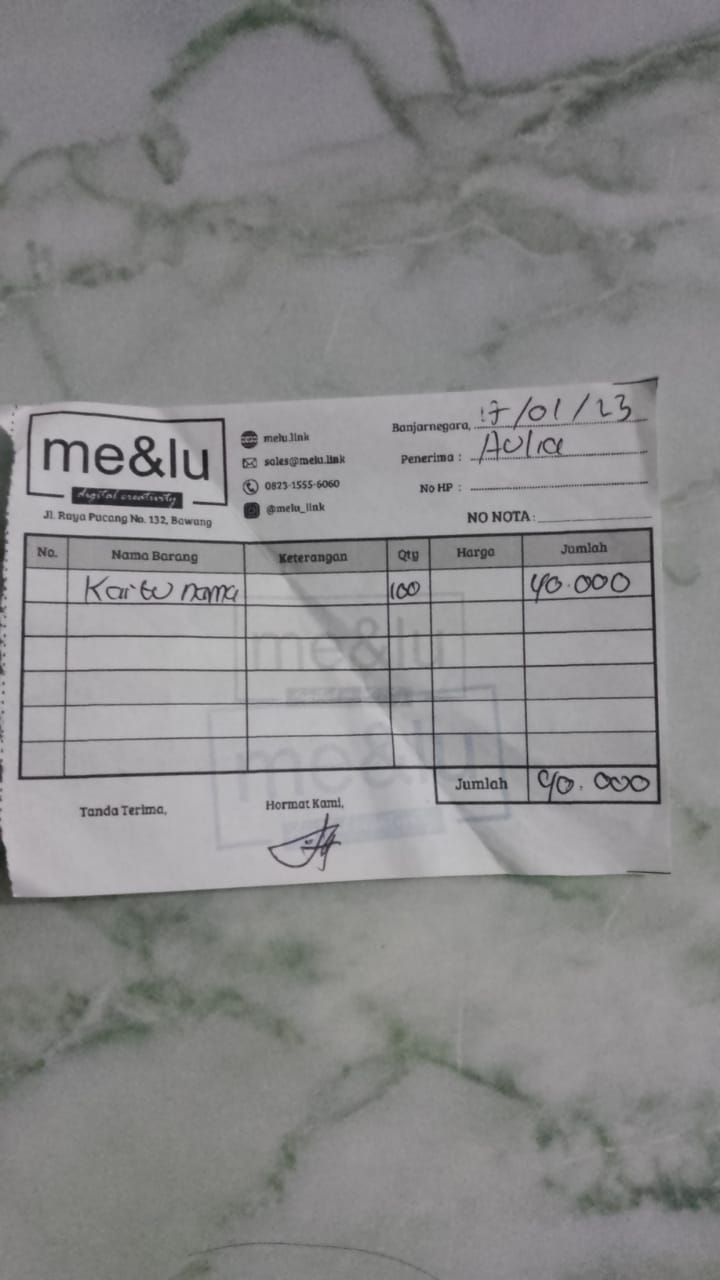 me&lu
digital creativity
Jl. Raya Pucang No. 132, Bawang
melu.link
sales@melu.link
0823-1555-6060
@melu_link
Banjarnegara, 17/01/23
Penerima : Aulia
No HP :
NO NOTA:
No. Nama Barang Keterangan Qty Harga Jumlah
Kartu nama 100 40.000
me&lu
me&lu
Jumlah 40.000
Tanda Terima,
Hormat Kami,